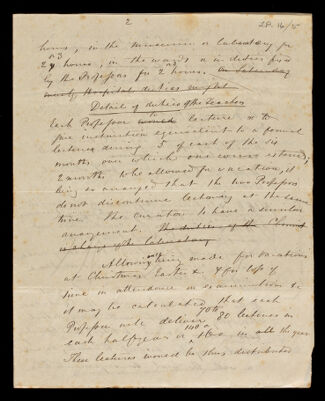 2
28.16/5
hours, in the Museum or Laboratory for
2 or 3 hours, in the wards or in duties fixed
by the Professors for 2 hours. On Saturday
Hospital duties might
Detail of duties of the Teachers
Each Professor to lecture or to
give instruction equivalent to a formal
lecture during 5 of each of the six
months over which one course extends;
2 months to be allowed for vacation, it
being so arranged that the two Professors
do not discontinue lecturing at the same
time. The Curator to have a similar
arrangement. The duties of the
in charge of the Laboratory
Allowing being made for vacations
at Christmas Easter & & for loss of
time in attendance on examinations &c
it may be calculated that each
Professor will deliver 70 or 80 lectures in
each half year or 140 or 160 in all the year
These lectures would be thus distributed